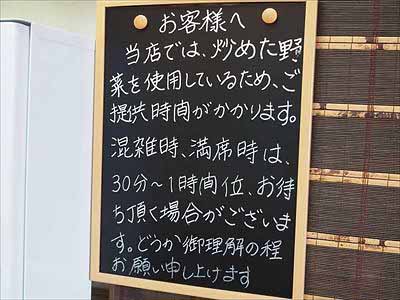 お客様へ
当店では、炒めた野
菜を使用しているため、ご
提供時間がかかります。
混雑時、満席時は、
30分～1時間位、お待
ち頂く場合がございま
す。どうか御理解の程
お願い申し上げます